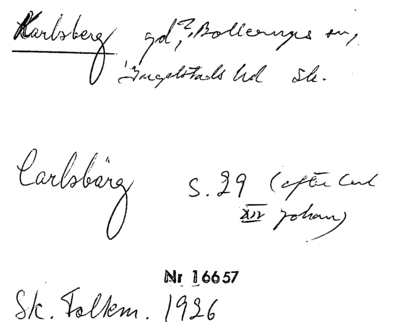 Karlsberg gd?, Bollerups sn,
Ingelstads hd Sk.
Carlsbärg s. 29 (efter Carl
XIV Johan)
Nr 16657
Sk. Folkm. 1926